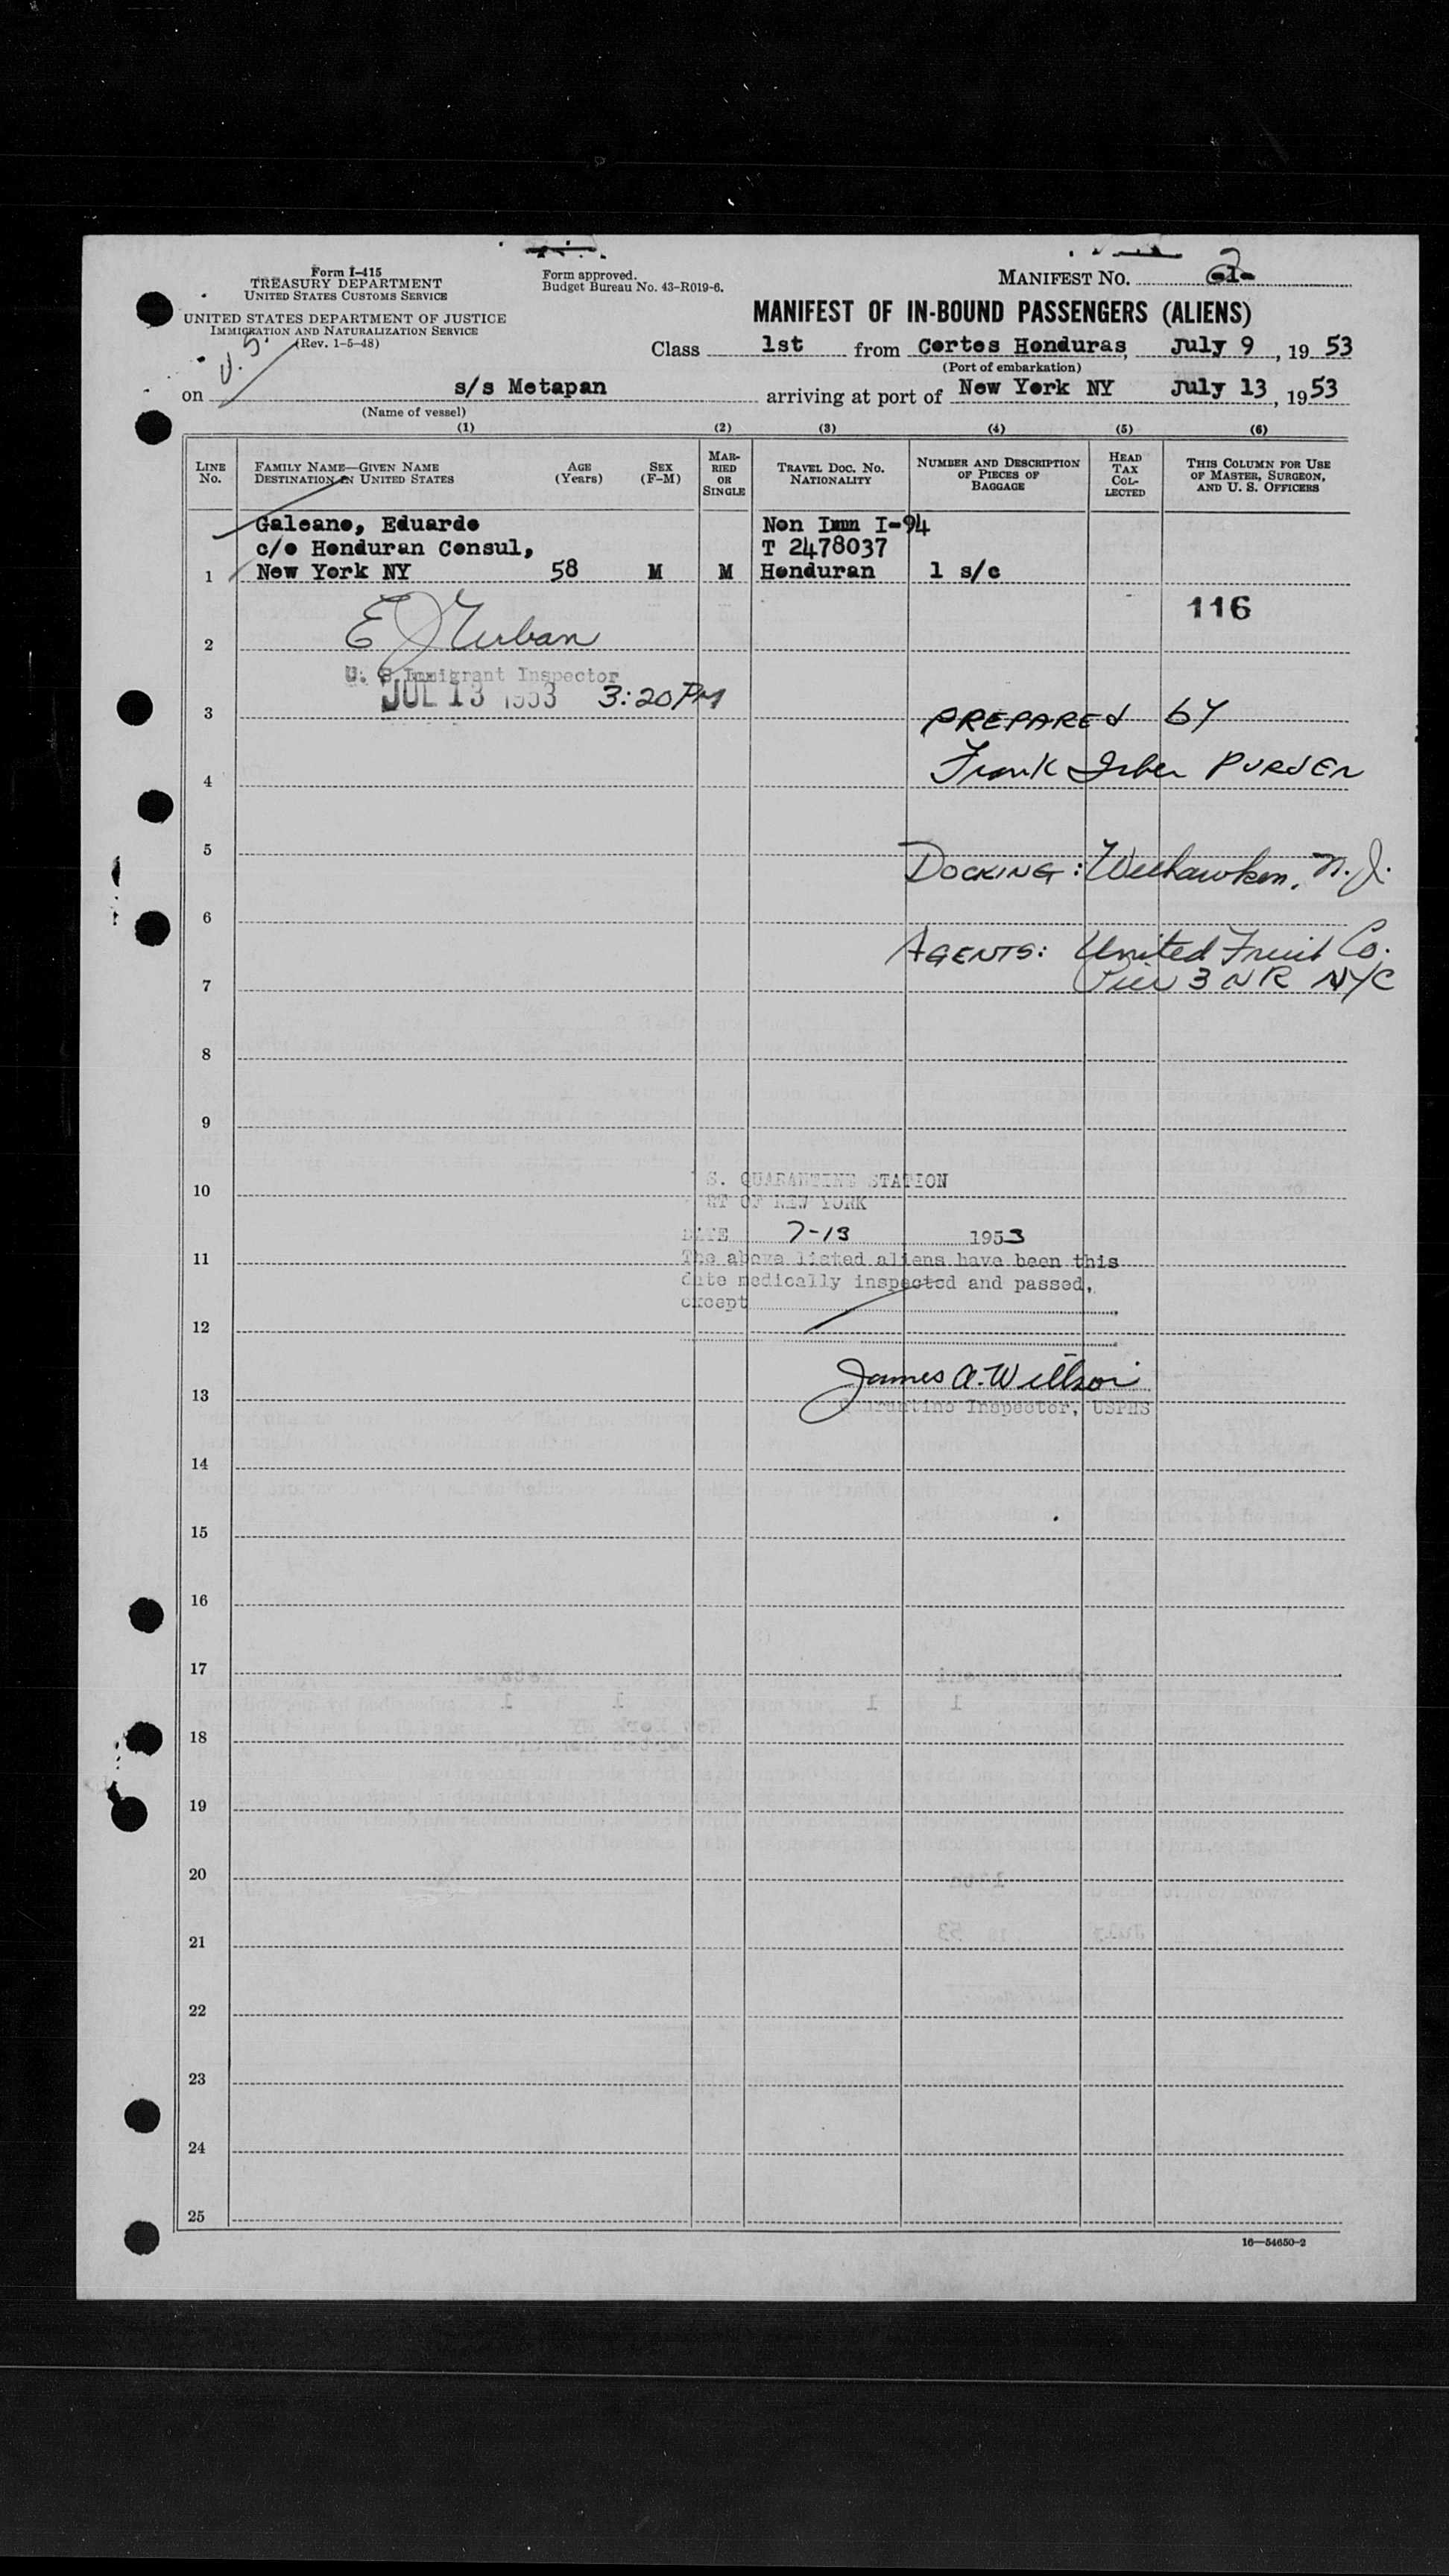 Form I-415
TREASURY DEPARTMENT
UNITED STATES CUSTOMS SERVICE
UNITED STATES DEPARTMENT OF JUSTICE
IMMIGRATION AND NATURALIZATION SERVICE
(Rev. 1-5-48)
U.S.
Form approved.
Budget Bureau No. 43-R019-6.
MANIFEST NO. -1- 2
MANIFEST OF IN-BOUND PASSENGERS (ALIENS)
Class 1st from Cortes Honduras, July 9, 1953
(Port of embarkation)
on s/s Metapan arriving at port of New York NY July 13, 1953
(Name of vessel)
(1) (2) (3) (4) (5) (6)
LINE No.
FAMILY NAME—GIVEN NAME
DESTINATION IN UNITED STATES
AGE (Years)
SEX (F-M)
MARRIED OR SINGLE
TRAVEL DOC. NO. NATIONALITY
NUMBER AND DESCRIPTION OF PIECES OF BAGGAGE
HEAD TAX COLLECTED
THIS COLUMN FOR USE OF MASTER, SURGEON, AND U. S. OFFICERS
Galeano, Eduardo Non Imm I-94
c/o Honduran Consul, T 2478037
1 New York NY 58 M M Honduran 1 s/c
116
2 E J Urban
U. S. Immigrant Inspector
JUL 13 1953 3:20 PM
3 PREPARED BY
4 Frank PURSER
5
DOCKING: Weehawken, N.J.
6
AGENTS: United Fruit Co.
7 Pier 3 NR NYC
8
9
S. QUARANTINE STATION
10
RT OF NEW YORK
DATE 7-13 1953
11 The above listed aliens have been this
date medically inspected and passed,
except
12
James A. Willson
13
Quarantine Inspector, USPHS
14
15
16
17
18
19
20
21
22
23
24
25
16—54650-2